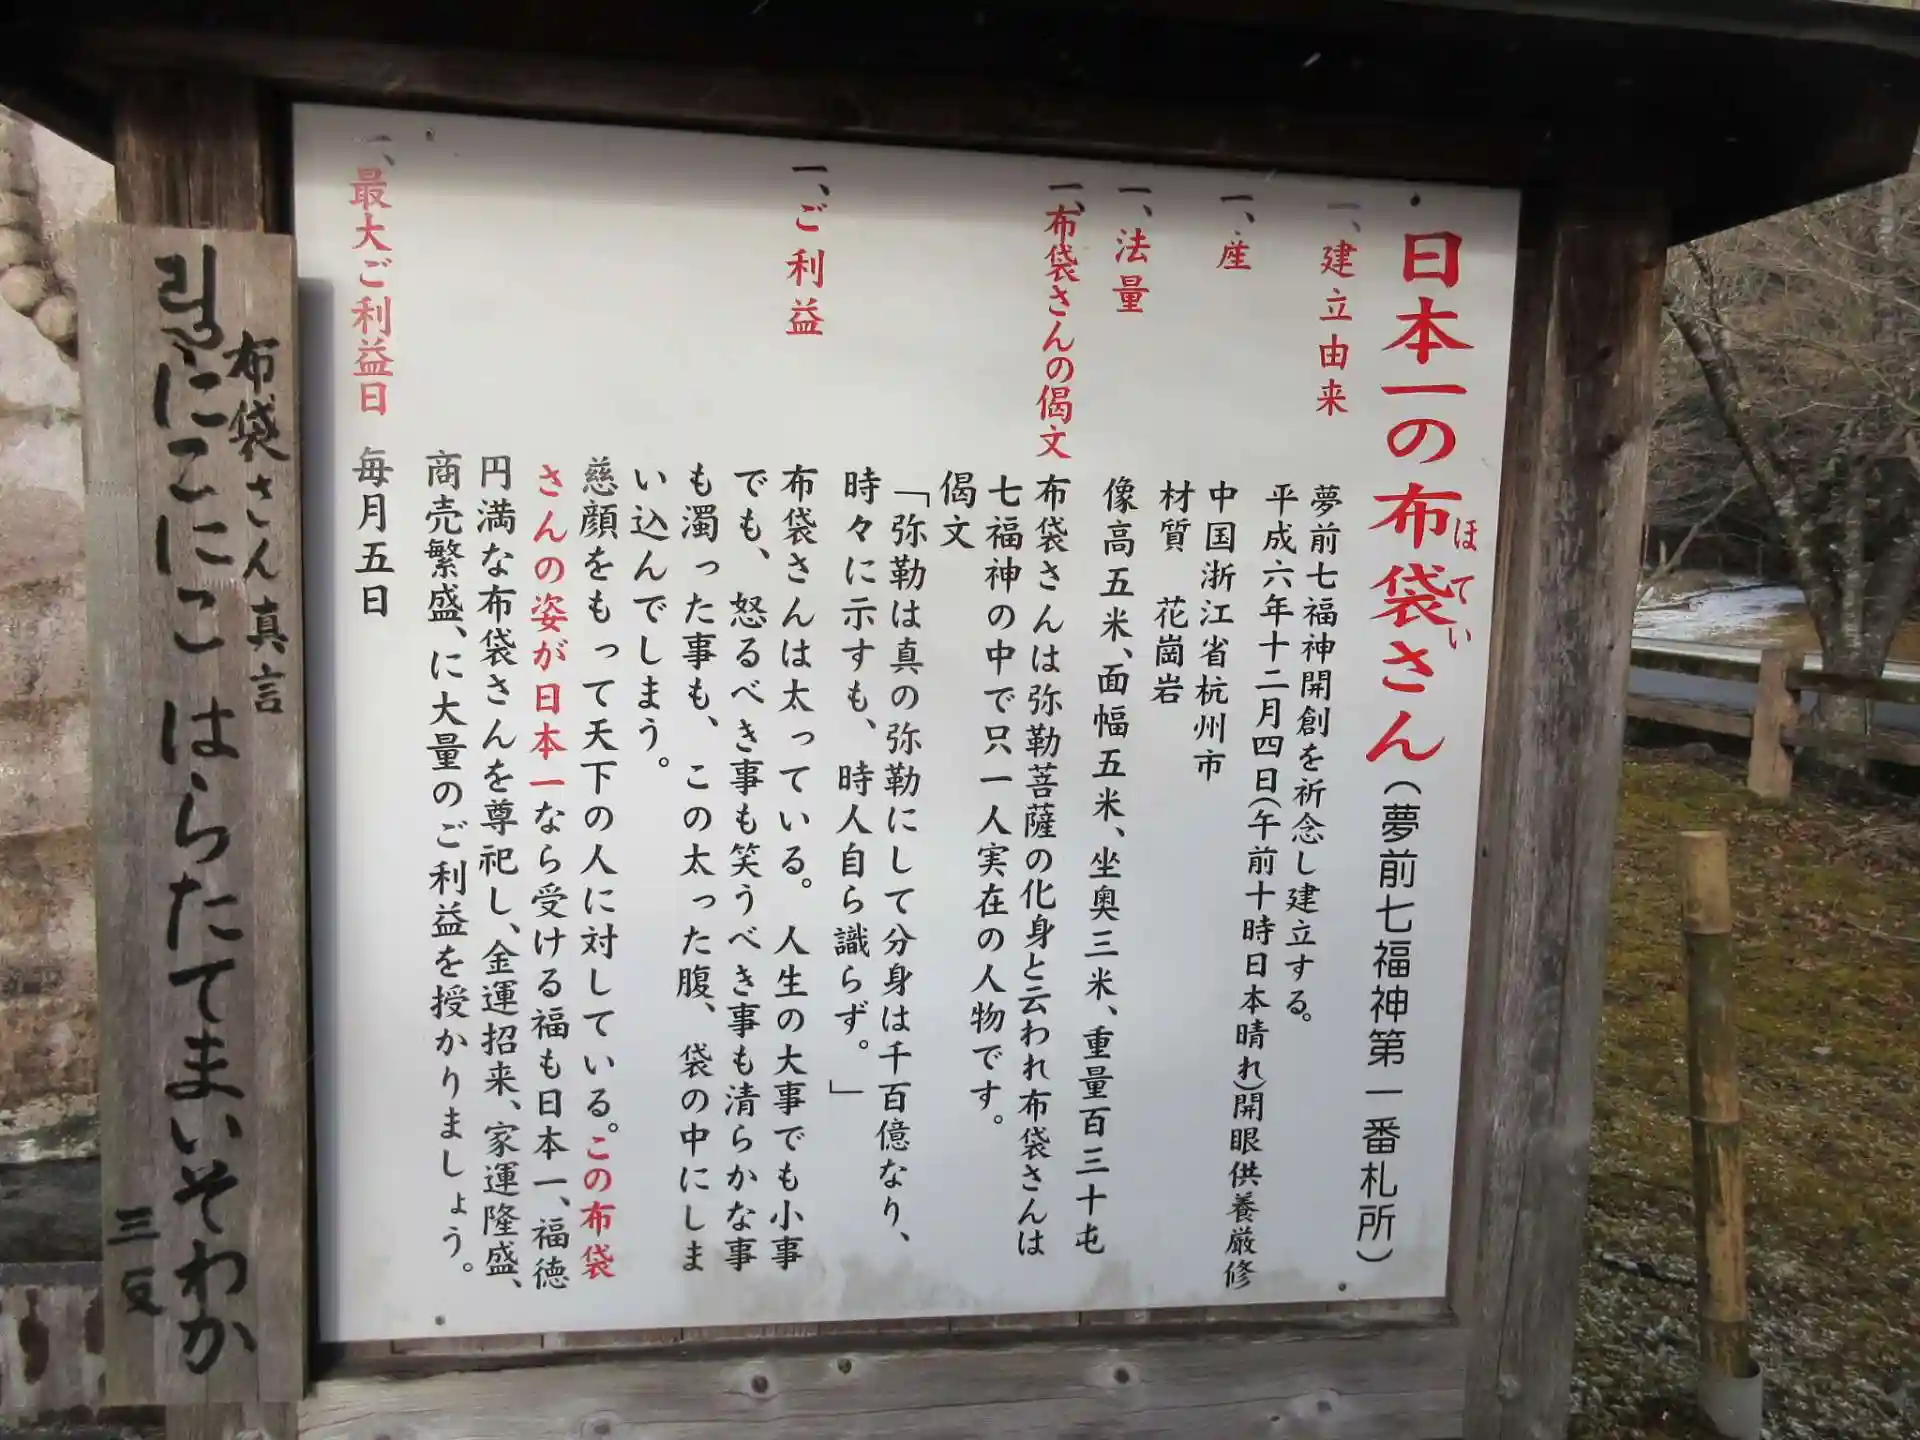 日本一の布袋さん（夢前七福神第一番札所）
ほてい
一、建立由来
夢前七福神開創を祈念し建立する。
平成六年十二月四日（午前十時日本晴れ）開眼供養厳修
一、産
中国浙江省杭州市
材質　花崗岩
一、法量
像高五米、面幅五米、坐奥三米、重量百三十屯
一、布袋さんの偈文
布袋さんは弥勒菩薩の化身と云われ布袋さんは
七福神の中で只一人実在の人物です。
偈文
「弥勒は真の弥勒にして分身は千百億なり、
時々に示すも、時人自ら識らず。」
一、ご利益
布袋さんは太っている。人生の大事でも小事
でも、怒るべき事も笑うべき事も清らかな事
も濁った事も、この太った腹、袋の中にしま
い込んでしまう。
慈顔をもって天下の人に対している。この布袋
さんの姿が日本一なら受ける福も日本一、福徳
円満な布袋さんを尊祀し、金運招来、家運隆盛、
商売繁盛、に大量のご利益を授かりましょう。
一、最大ご利益日
毎月五日
布袋さん真言
にこにこ はらたてまいそわか
三反